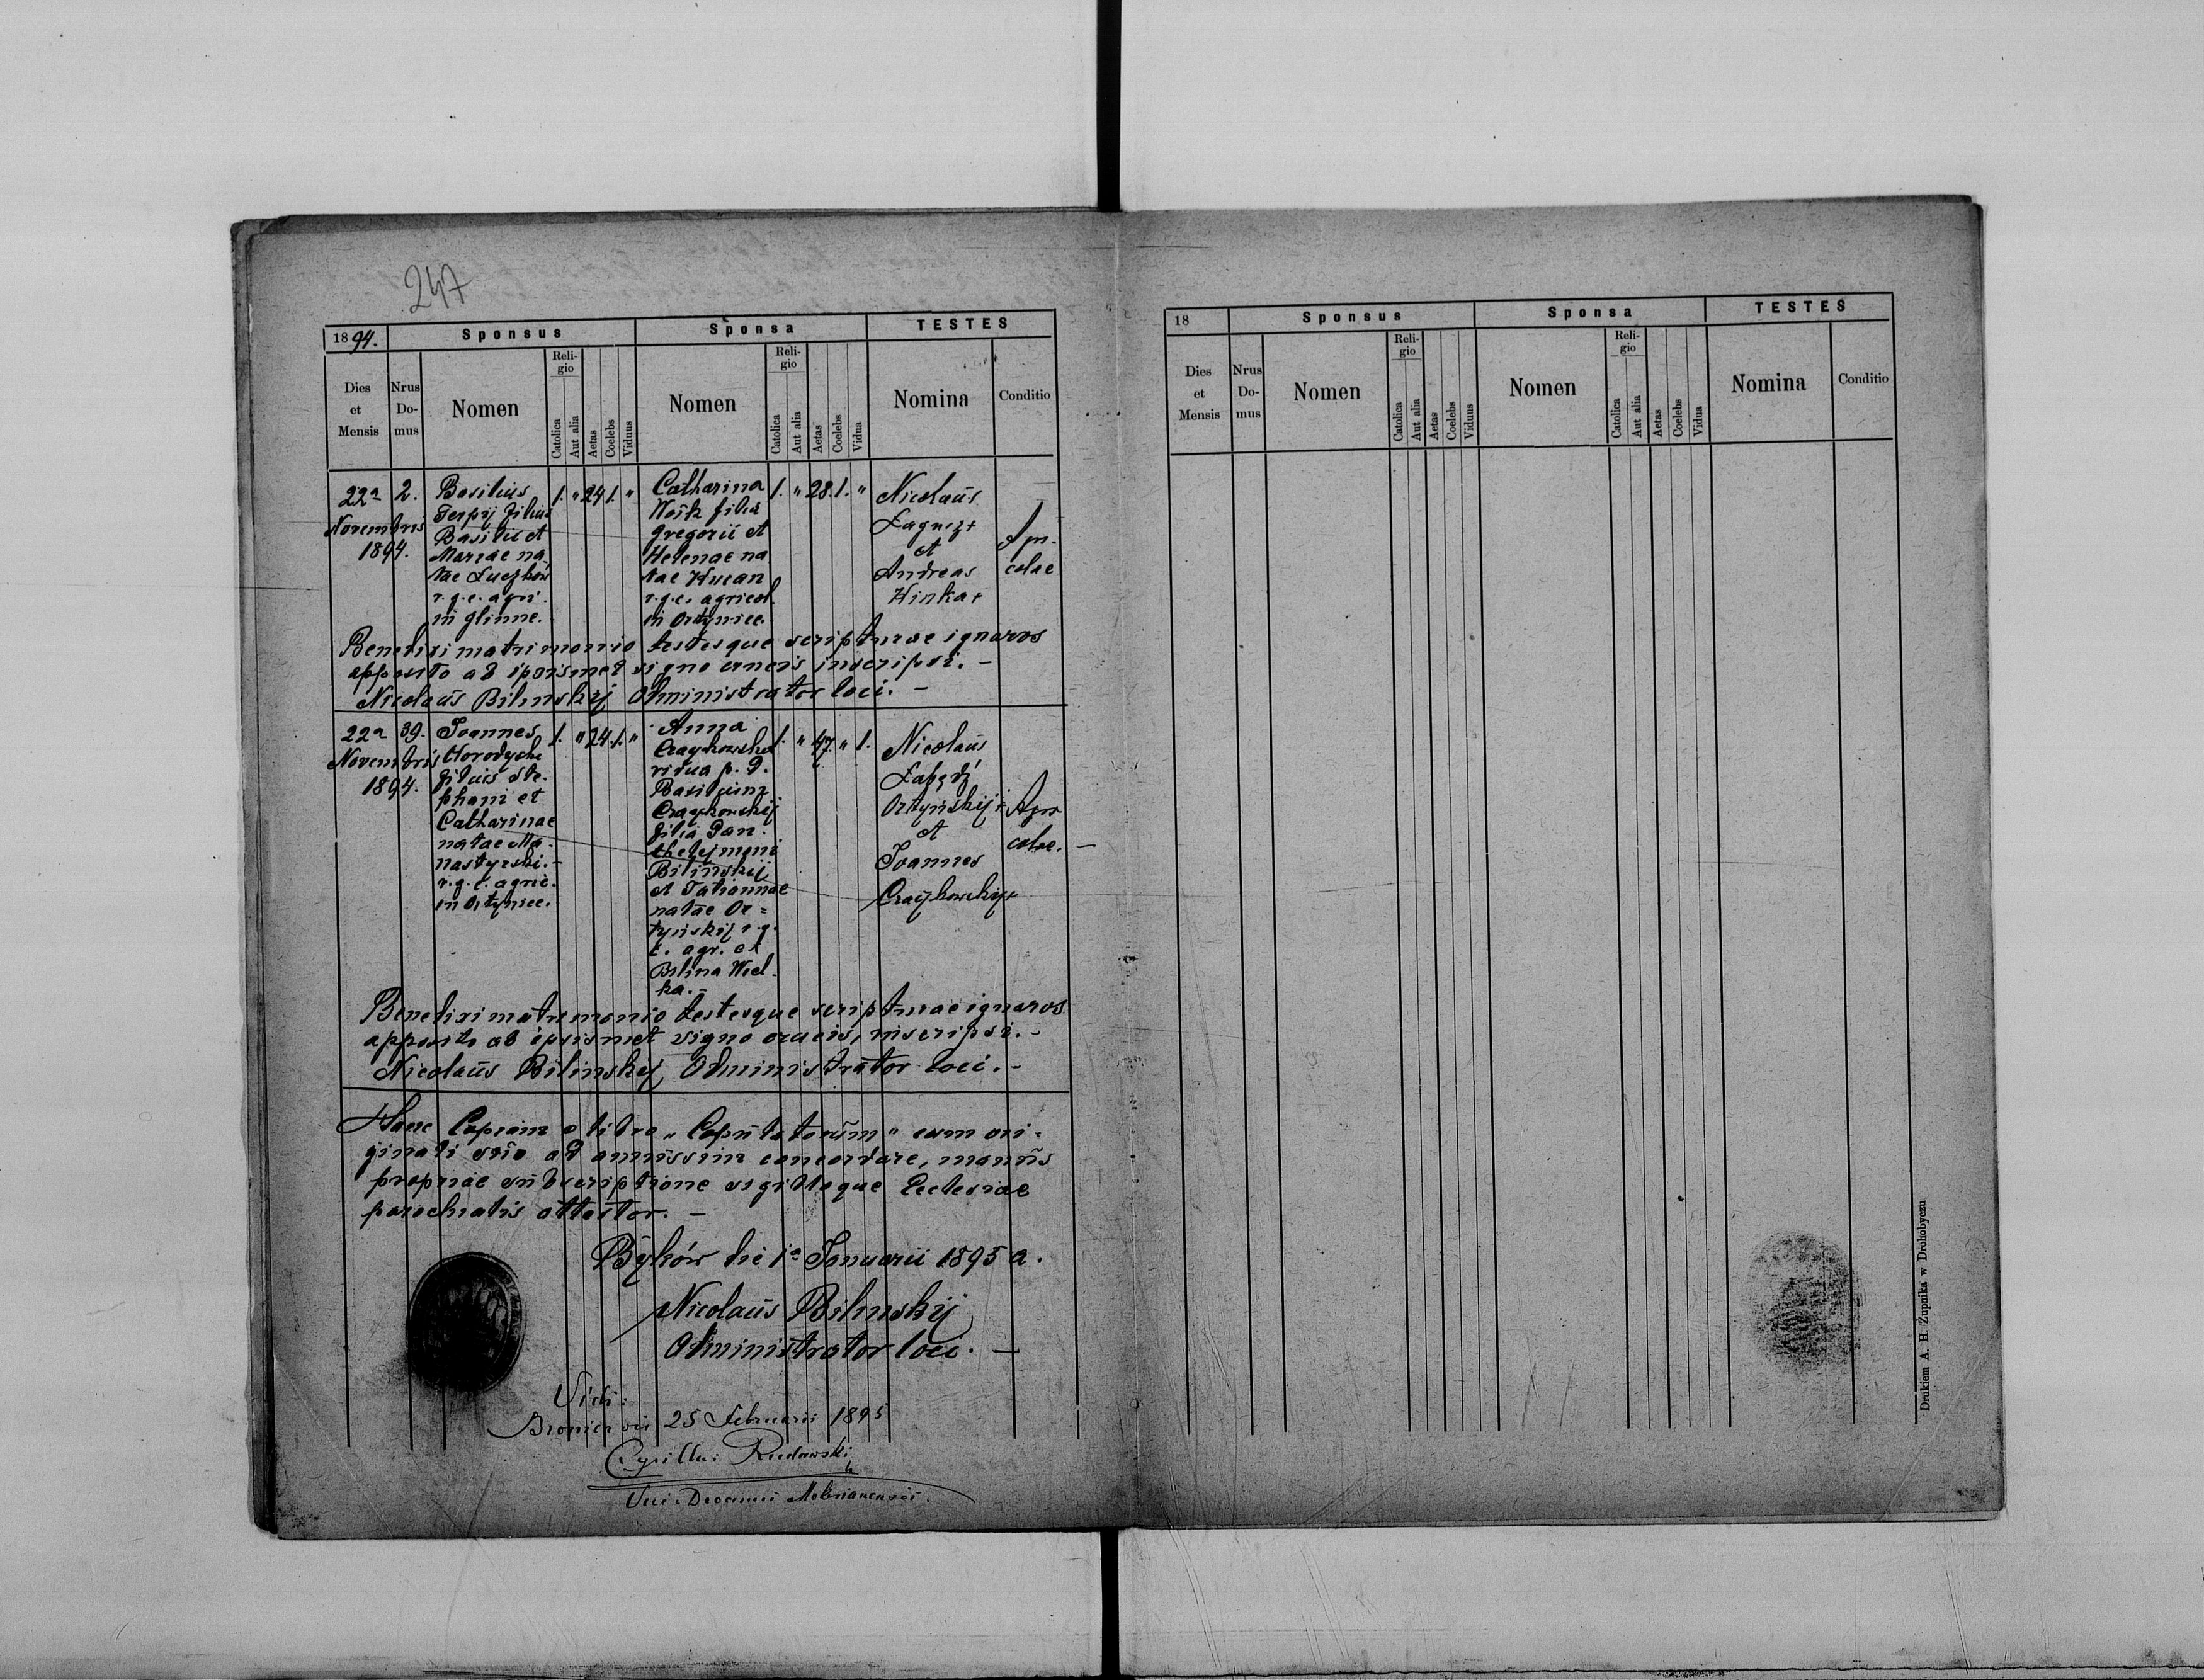 247
1894.
Sponsus
Sponsa
TESTES
Dies et Mensis
Nrus Domus
Nomen
Religio
Catolica
Aut alia
Aetas
Coelebs
Viduus
Nomen
Religio
Catolica
Aut alia
Aetas
Coelebs
Vidua
Nomina
Conditio
22a
Novembris
1894.
2.
Basilius
Terpij filius
Basilii et
Mariae na
tae Luczków
r.g.c. agri.
in Glinne.
1. " 24 1. "
Catharina
Wośk filia
Gregorii et
Helenae na
tae Hucan
r.g.c. agricol.
in Ortynice.
1. " 28. 1. "
Nicolaus
et
Andreas
Hinka+
Agri-
colae
Benedixi matrimonio testesque scripturae ignaros
apposito ab ipsismet signo crucis inscripsi. –
Nicolaus Bilinskij Administrator loci. –
22a
Novembris
1894.
39.
Joannes
Horodyski
filius Ste-
phani et
Catharinae
natae Mo-
nastyrski. –
r.g.c. agric.
in Ortynice.
1. " 24. 1. "
Anna
Czaykowska
vidua p. d.
Basilium
Czaykowskij
filia Pan-
theleymoni
Bilinskij
et Tatiannae
natae Or=
tyńskij r.g.
c. agr. ex
Bilina Wiel-
ka. –
1. " 47 " 1.
Nicolaus
Łabędź
Ortyńskij +
et
Joannes
Czaykowskij+
Agri
colae. –
Benedixi matrimonio testesque scripturae ignaros
apposito ab ipsismet signo crucis, inscripsi. –
Nicolaus Bilinskij Administrator loci. –
Hanc Copiam e libro „Copulatorum" cum ori-
ginali suo ad amussim concordare, manus
propriae subscriptione sigilloque Ecclesiae
parochialis attestor. –
Byków die 1a Januarii 1895 a.
Nicolaus Bilinskij
Administrator loci. –
Vidi:
25 Februarii 1895
Cyrillus Rudawski
18
Sponsus
Sponsa
TESTES
Dies et Mensis
Nrus Domus
Nomen
Religio
Catolica
Aut alia
Aetas
Coelebs
Viduus
Nomen
Religio
Catolica
Aut alia
Aetas
Coelebs
Vidua
Nomina
Conditio
Drukiem A. H. Żupnika w Drohobyczu